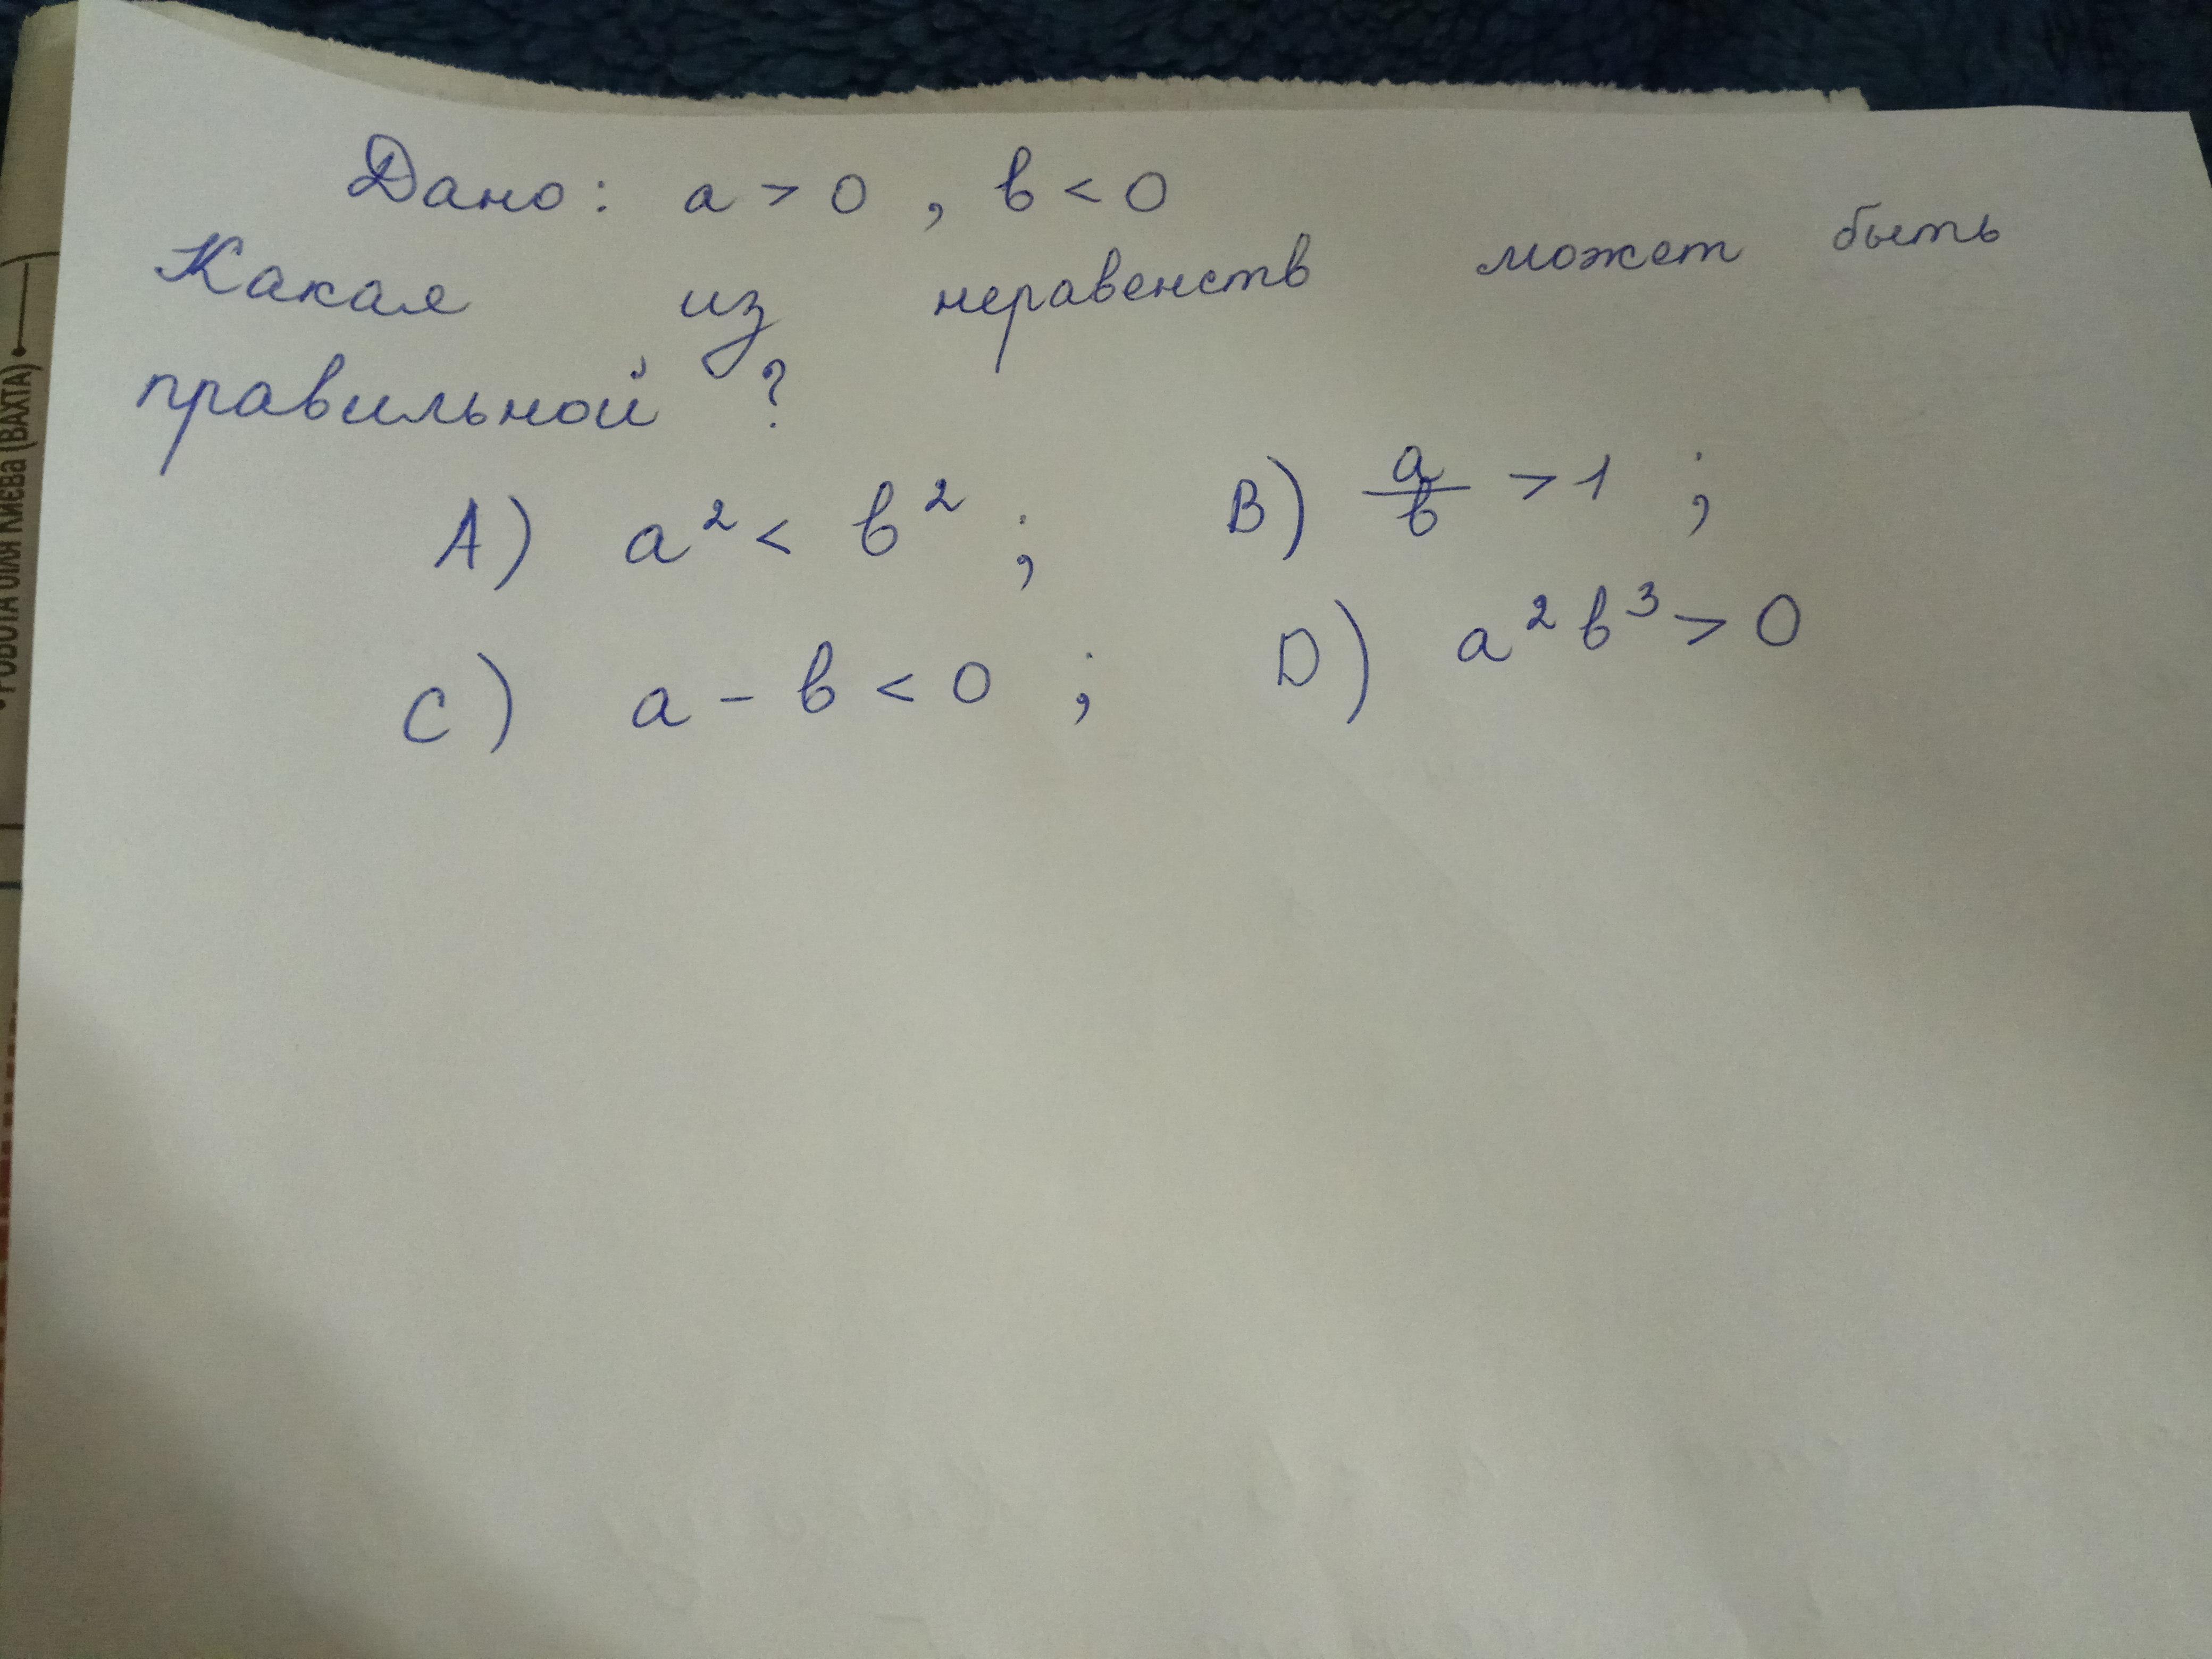 Дано: a > 0 , b < 0
Какая из неравенств может быть
правильной ?
A) a² < b² ; B) a/b > 1 ;
C) a - b < 0 ; D) a²b³ > 0
РОБОТА БІЛЯ КИЄВА (ВАХТА)